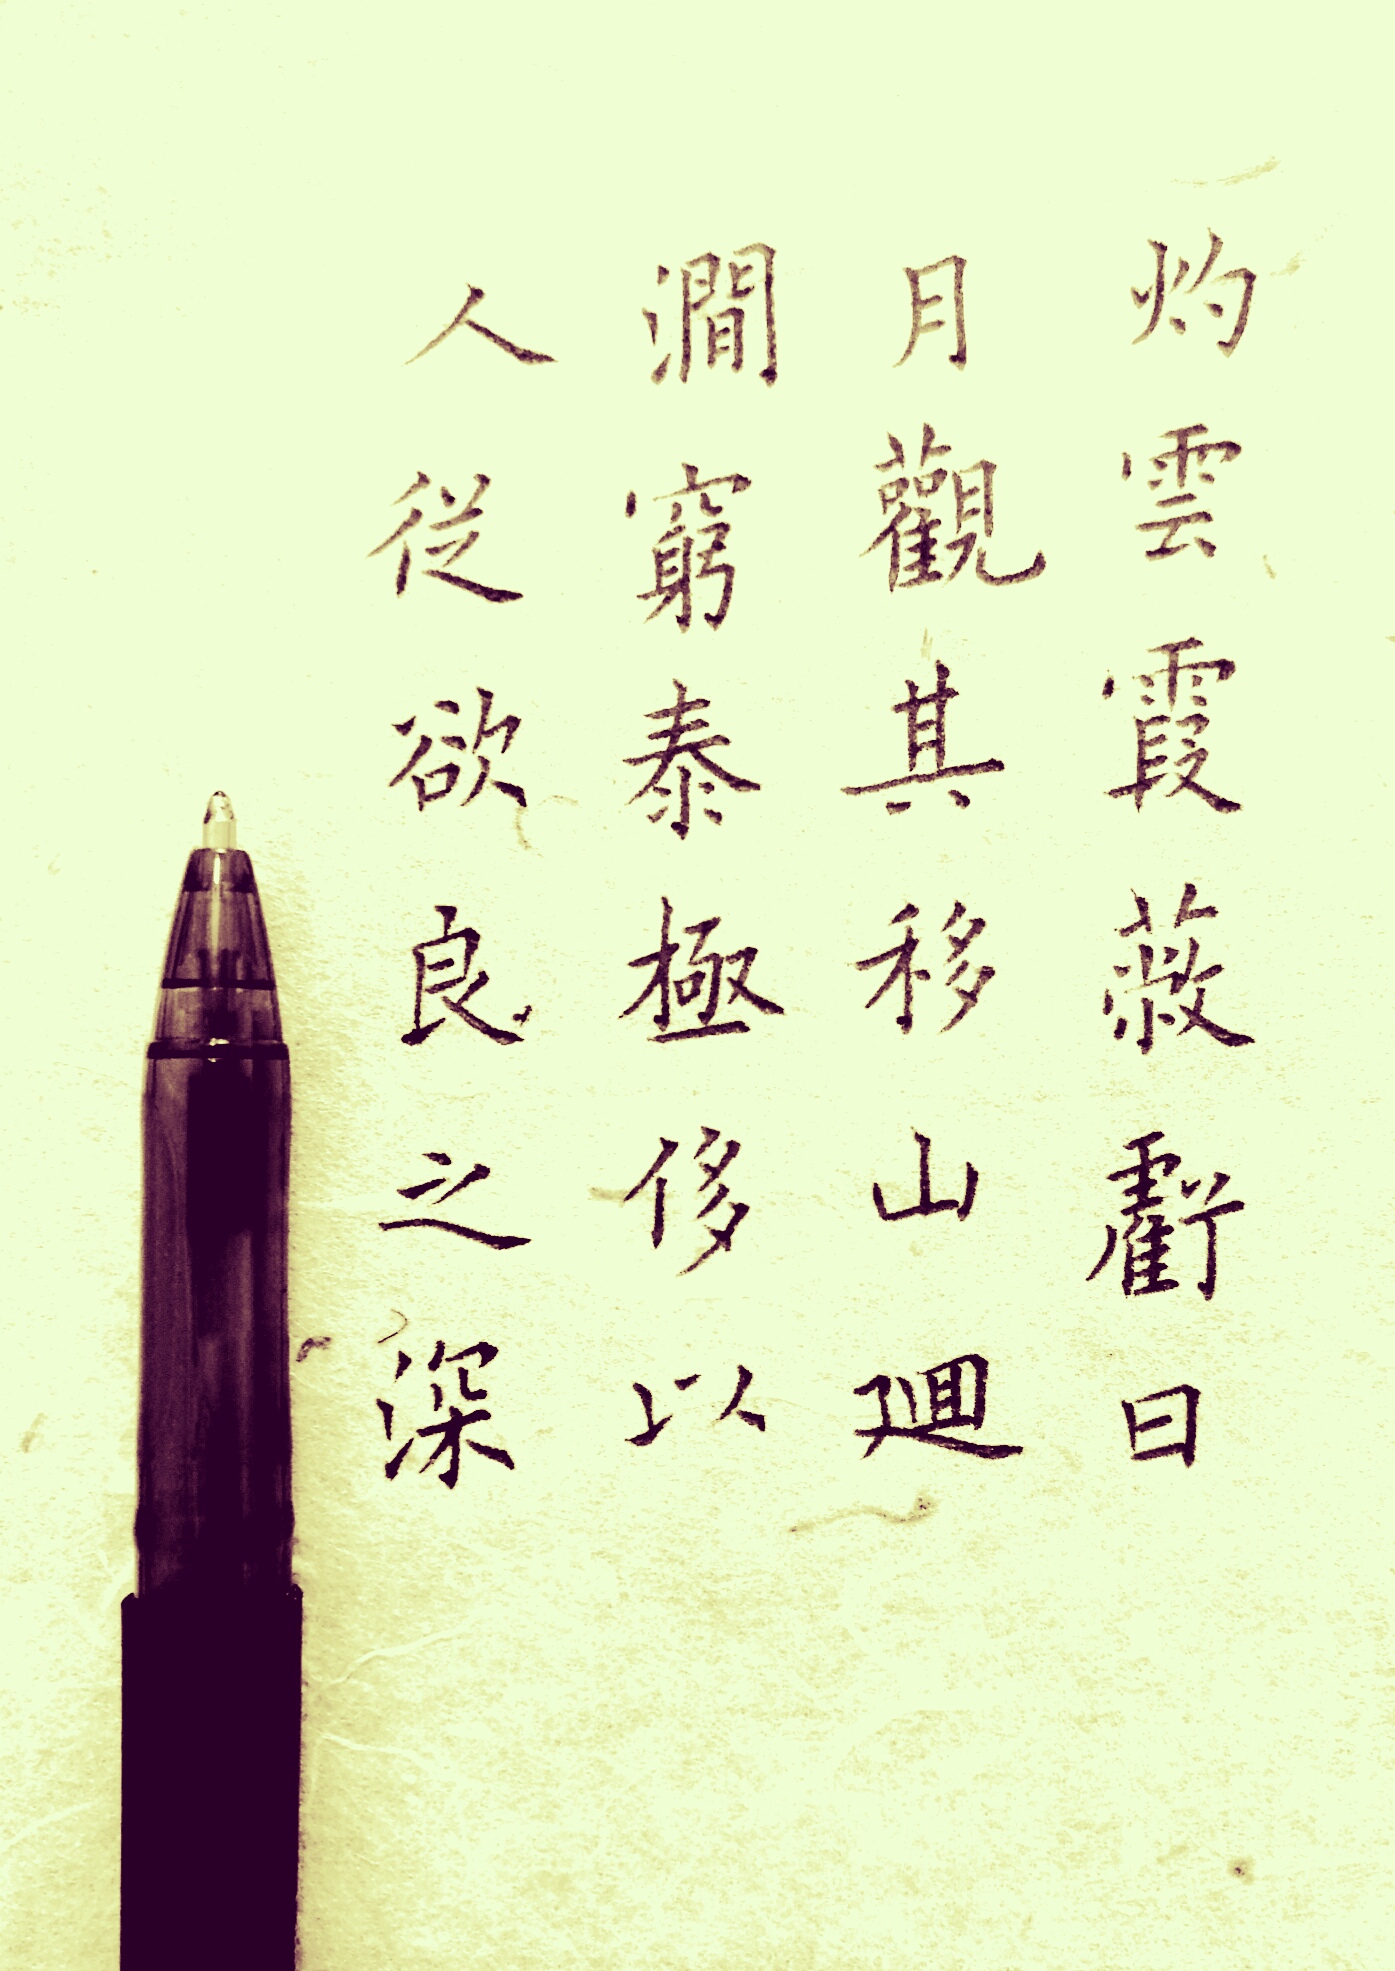 灼雲霞蔽虧日
月觀其移山廻
澗窮泰極侈以
人従欲良之深